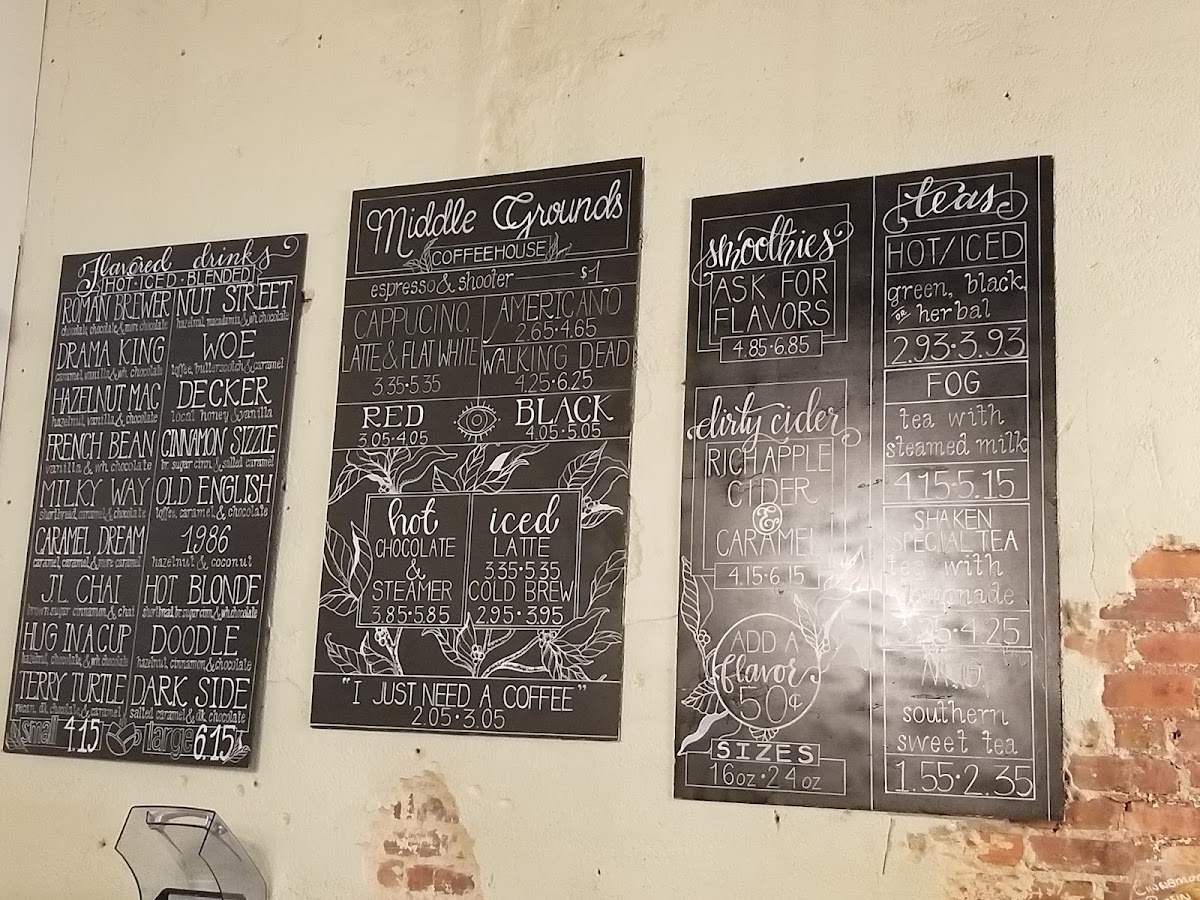 Flavored drinks
HOT · ICED · BLENDED
ROMAN BREWER
chocolate, chocolate & more chocolate
DRAMA KING
caramel, vanilla & wh. chocolate
HAZELNUT MAC
hazelnut, vanilla & chocolate
FRENCH BEAN
vanilla & wh chocolate
MILKY WAY
shortbread, caramel & chocolate
CARAMEL DREAM
caramel, caramel & more caramel
J.L. CHAI
brown sugar cinnamon & chai
HUG IN A CUP
hazelnut, chocolate, & wh. chocolate
TERRY TURTLE
pecan, dk. chocolate & caramel
NUT STREET
hazelnut, macadamia & wh. chocolate
WOE
toffee, butterscotch & caramel
DECKER
local honey & vanilla
CINNAMON SIZZLE
br. sugar cinn. & salted caramel
OLD ENGLISH
toffee, caramel, & chocolate
1986
hazelnut & coconut
HOT BLONDE
shortbread, br. sugar cinn. & wh. chocolate
DOODLE
hazelnut, cinnamon & chocolate
DARK SIDE
salted caramel & dk. chocolate
small 4.15 large 6.15
Middle Grounds
COFFEEHOUSE
espresso & shooter $1
CAPPUCINO,
LATTE & FLAT WHITE
3.35 · 5.35
AMERICANO
2.65 · 4.65
WALKING DEAD
4.25 · 6.25
RED
3.05 · 4.05
BLACK
4.05 · 5.05
hot
CHOCOLATE
&
STEAMER
3.85 · 5.85
iced
LATTE
3.35 · 5.35
COLD BREW
2.95 · 3.95
"I JUST NEED A COFFEE"
2.05 · 3.05
smoothies
ASK FOR
FLAVORS
4.85 · 6.85
dirty cider
RICH APPLE
CIDER
&
CARAMEL
4.15 · 6.15
ADD A
flavor
50¢
SIZES
16oz · 24oz
teas
HOT/ICED
green, black,
or herbal
2.93 · 3.93
FOG
tea with
steamed milk
4.15 · 5.15
SHAKEN
SPECIAL TEA
tea with
lemonade
3.25 · 4.25
southern
sweet tea
1.55 · 2.35